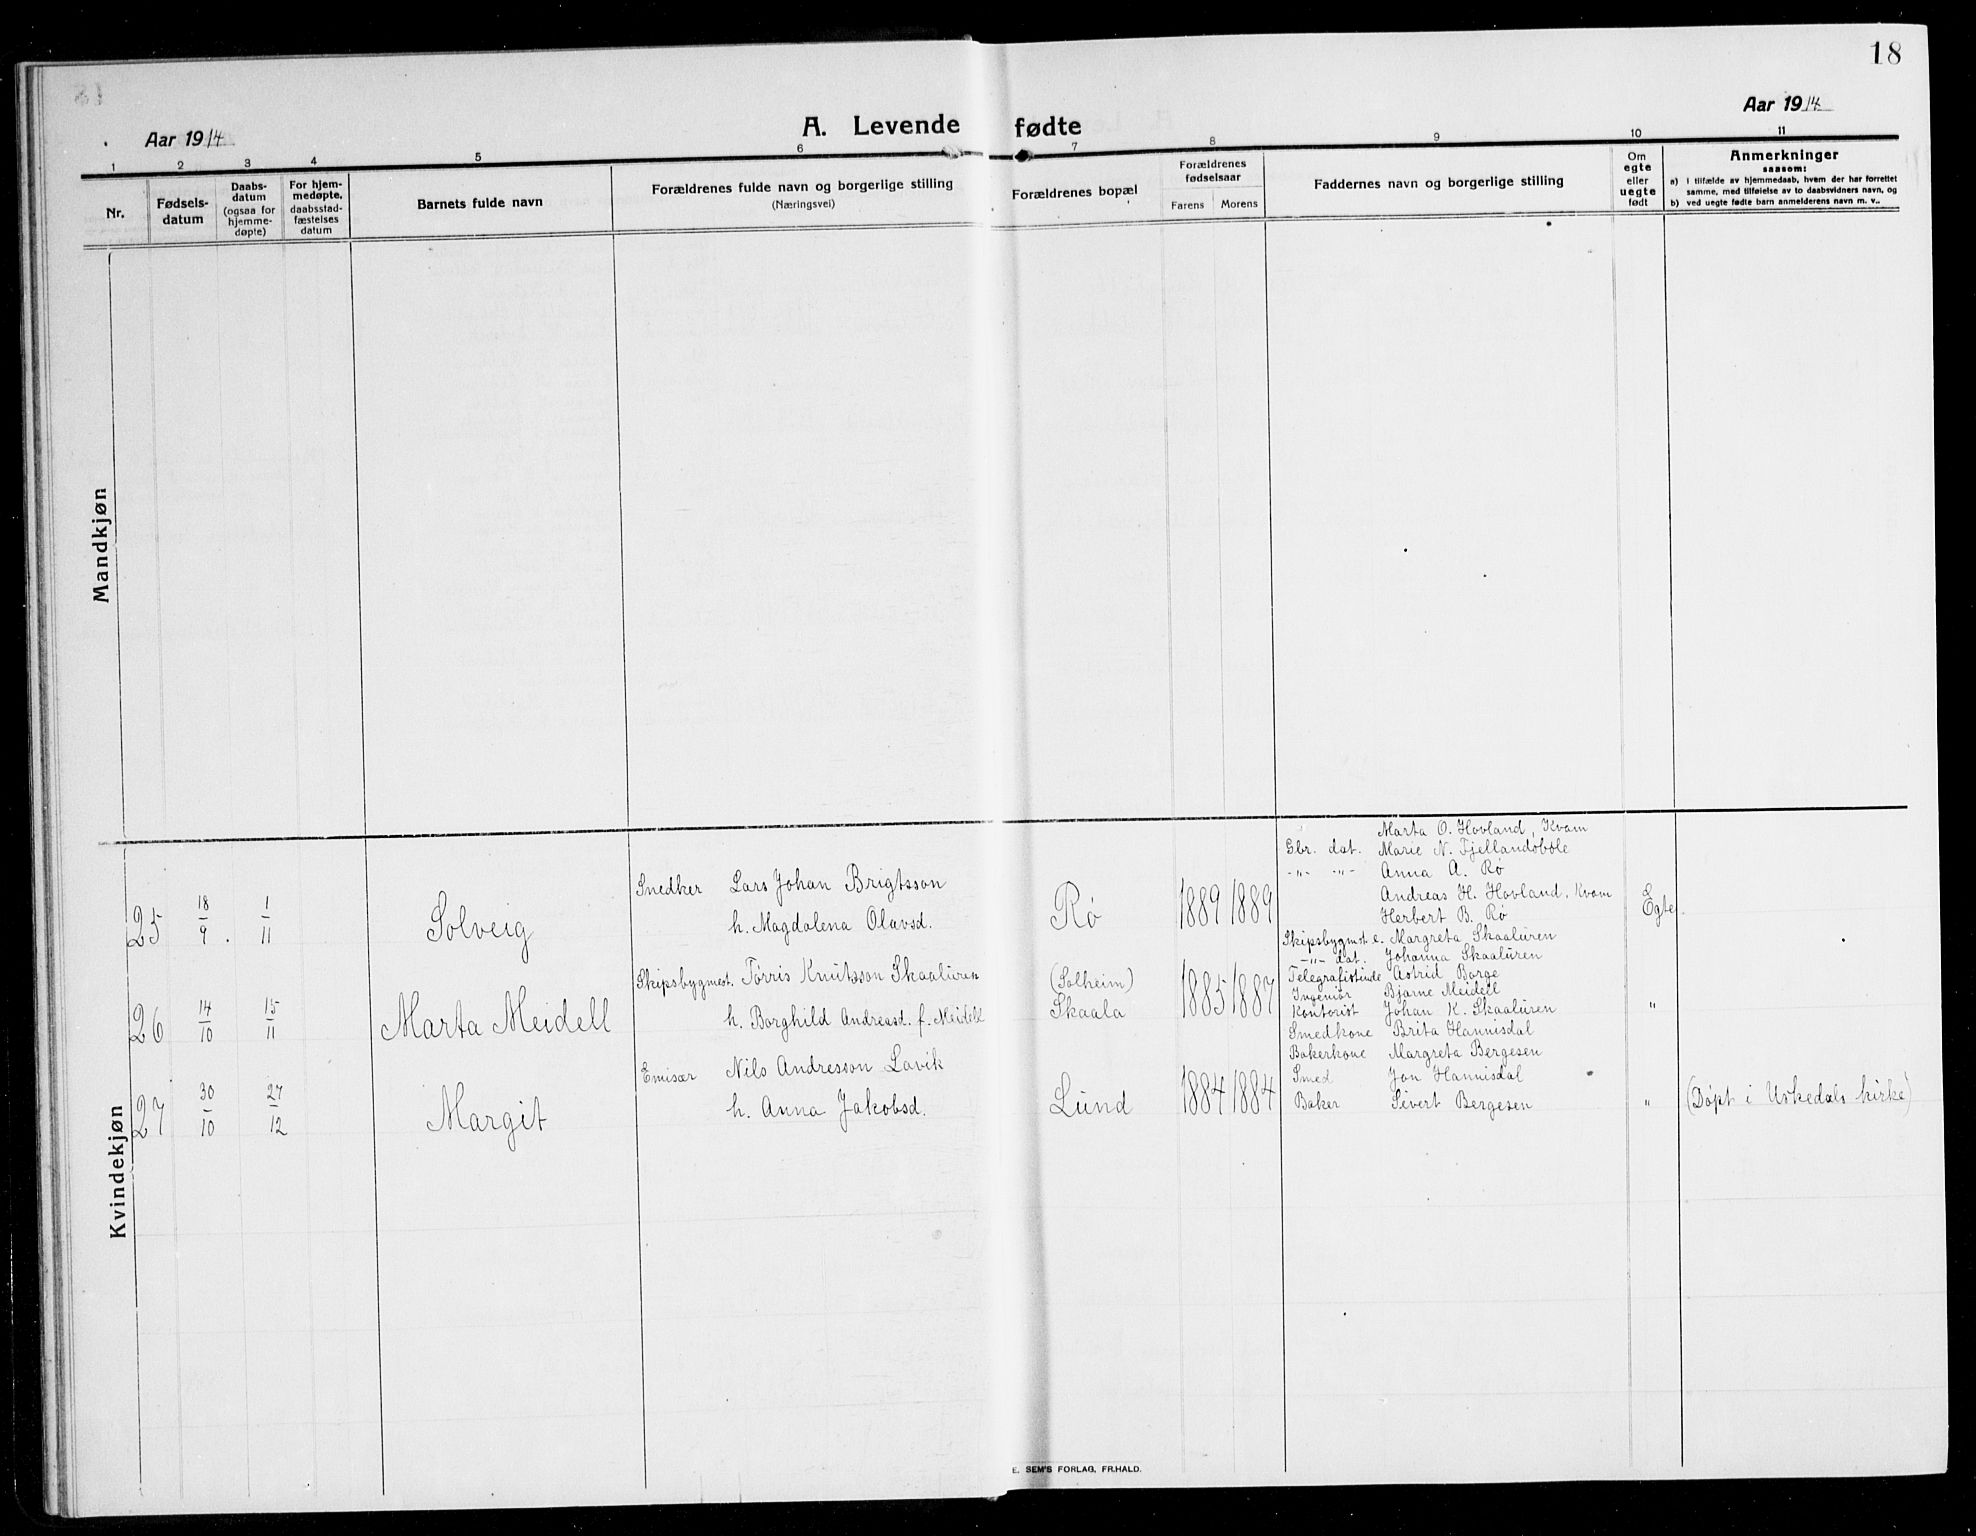 18
Aar 1914
A. Levende fødte
Aar 1914
1 2 3 4 5 6 7 8 9 10 11
Nr.
Fødsels-
datum
Daabs-
datum
(ogsaa for
hjemme-
døpte)
For hjem-
medøpte,
daabsstad-
fæstelses
datum
Barnets fulde navn
Forældrenes fulde navn og borgerlige stilling
(Næringsvei)
Forældrenes bopæl
Forældrenes
fødselsaar
Farens Morens
Faddernes navn og borgerlige stilling
Om
egte
eller
uegte
født
Anmerkninger
saasom:
a) i tilfælde av hjemmedaab, hvem der har forrettet
samme, med tilføielse av to daabsvidners navn, og
b) ved uegte fødte barn anmelderens navn m. v..
Mandkjøn
Kvindekjøn
25 18/9. 1/11 Solveig
Snedker Lars Johan Brigtsson
h. Magdalena Olavsd.
Rø 1889 1889
Marta O. Hovland, Kvam
Gbr. dat. Marie N. Fjellandsbøle
-"- -"- Anna A. Rø
Andreas H. Hovland, Kvam
Herbert B. Rø
Egte
26 14/10 15/11 Marta Meidell
Skipsbygmest. Tørris Knutsson Skaaluren
h. Borghild Andreasd. f. Meidell
(Solheim)
Skaala 1885 1887
Skipsbygmst. e. Margreta Skaaluren
-"- dat. Johanna Skaaluren
Telegrafistinde Astrid Borge
Ingeniør Bjarne Meidell
Kontorist Johan K. Skaaluren
"
27 30/10 27/12 Margit
Emisær Nils Andresson Lavik
h. Anna Jakobsd.
Lund 1884 1884
Smedkone Brita Hannisdal
Bakerkone Margreta Bergesen
Smed Jon Hannisdal
Baker Sivert Bergesen
" (Døpt i Uskedals kirke)
E. SEM'S FORLAG, FR.HALD.